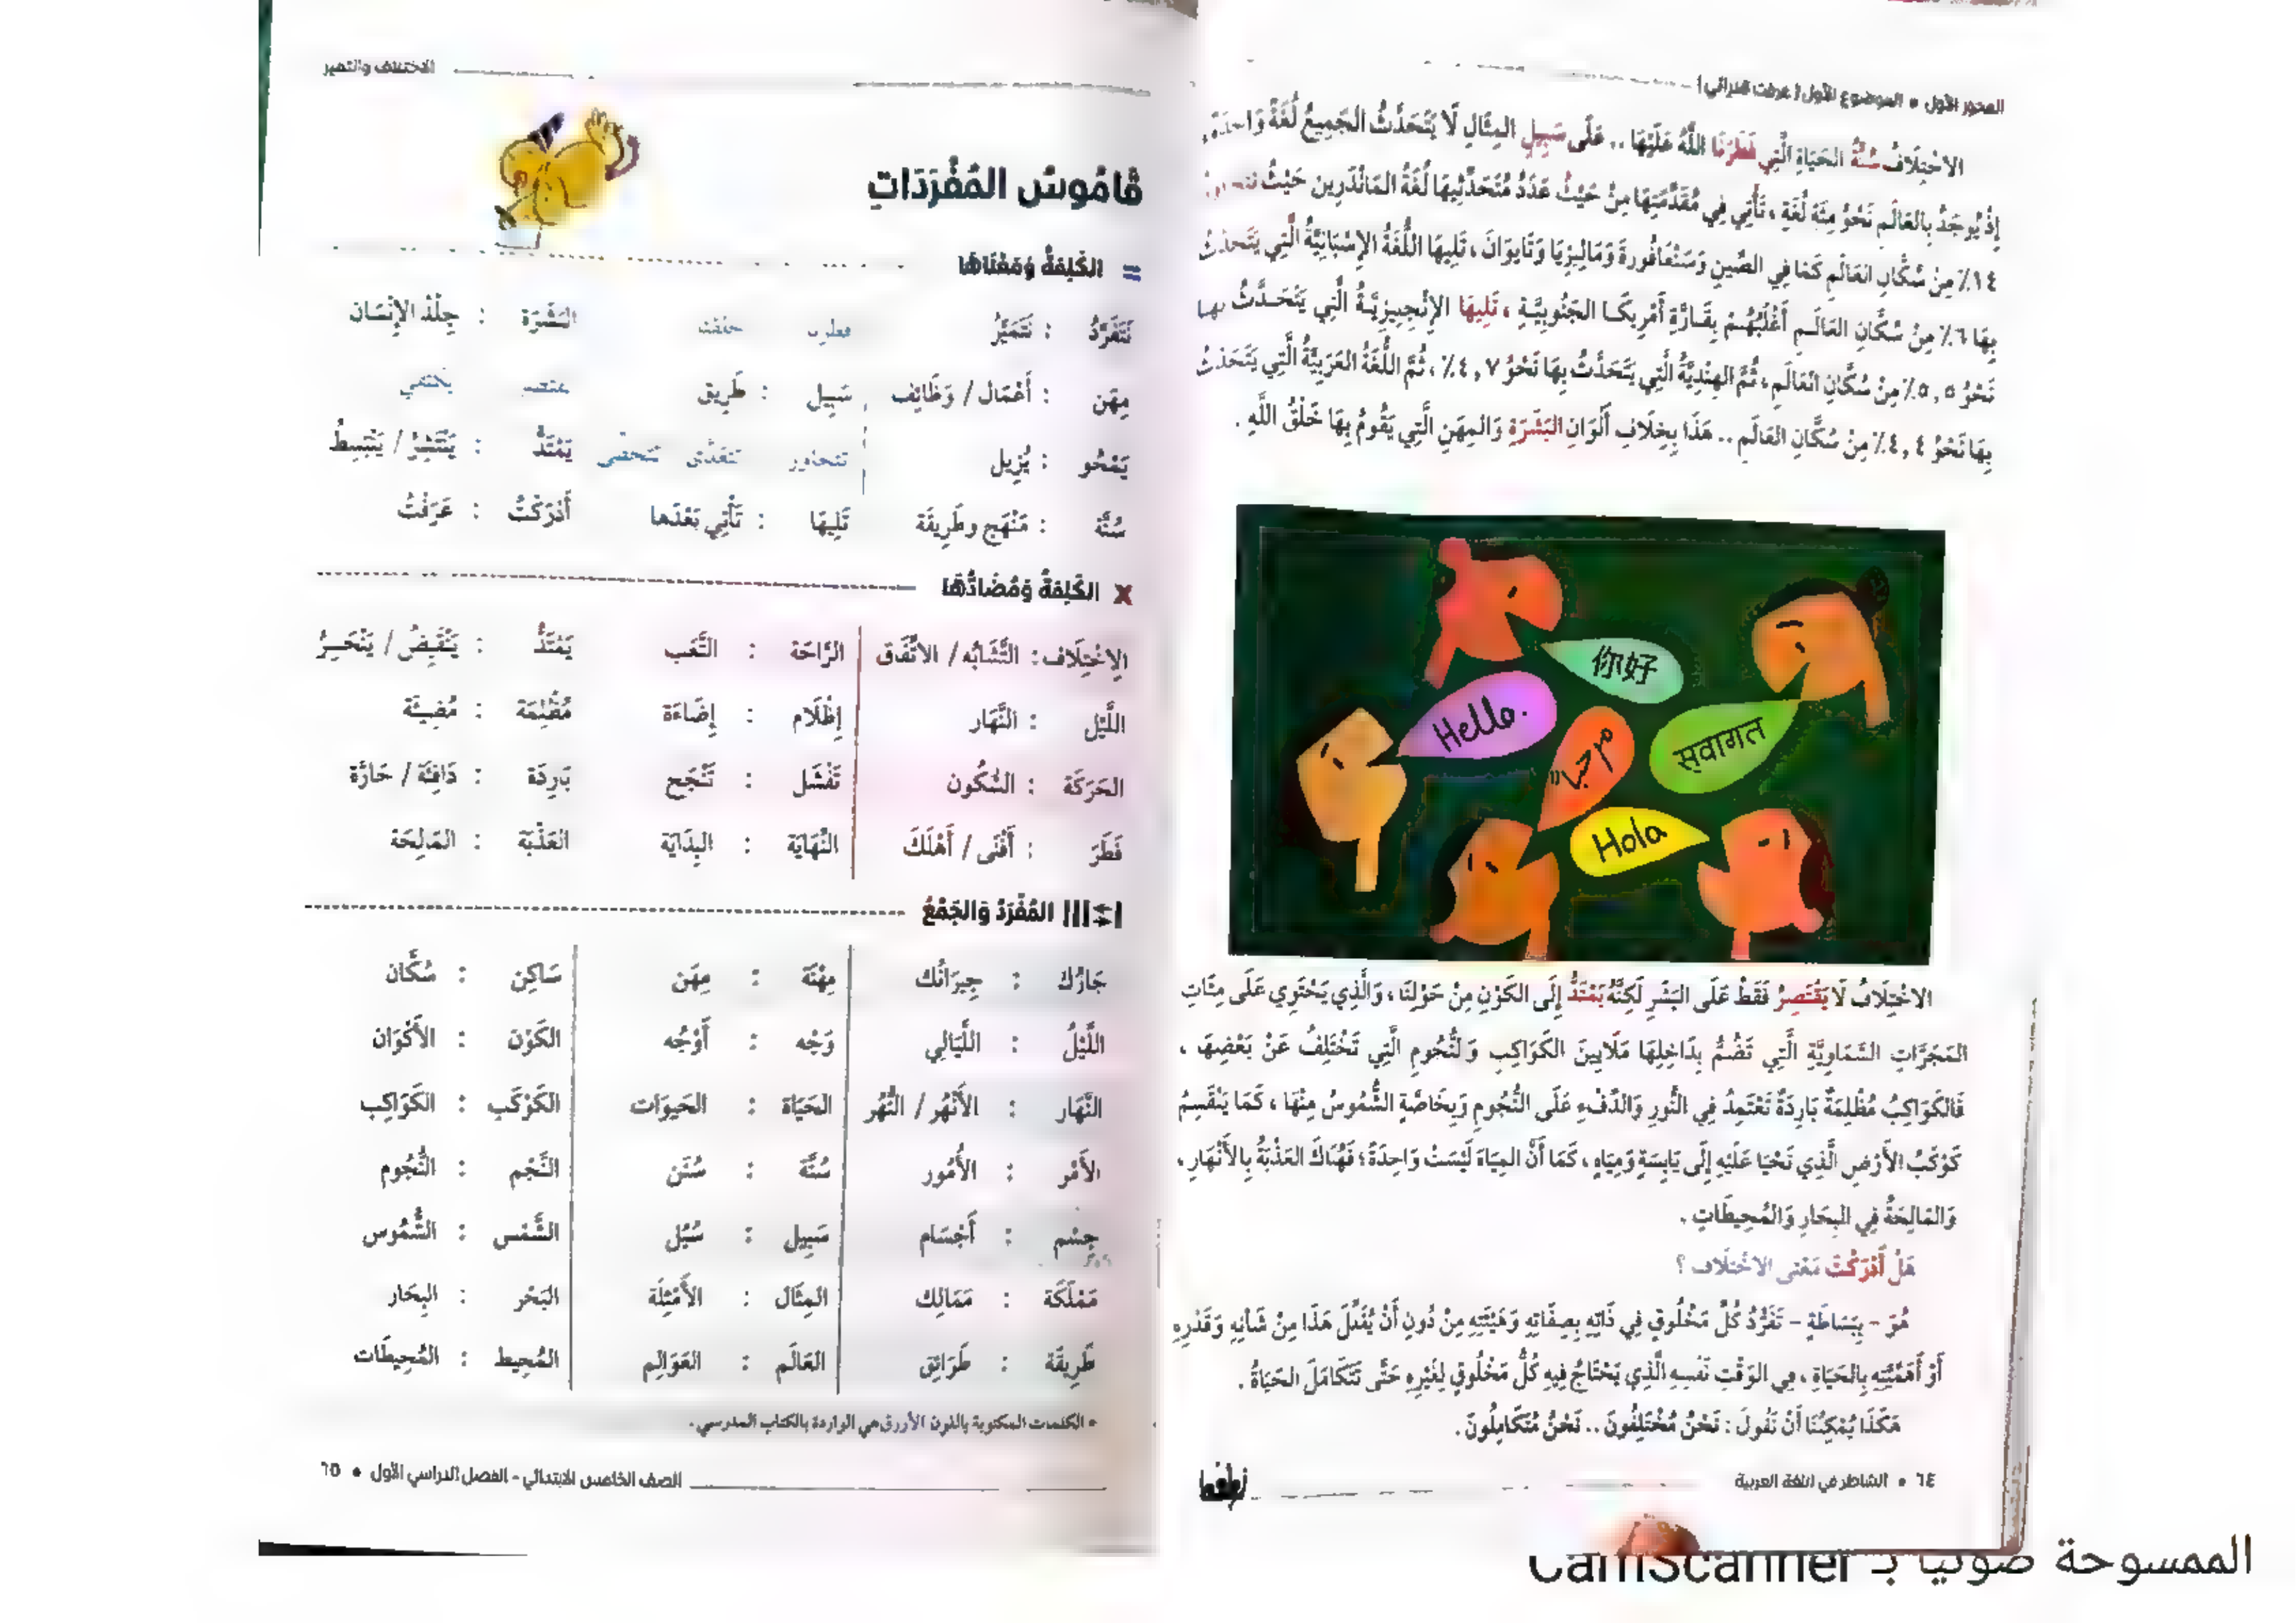 المحور الأول • الموضوع الأول ( عرفت قدراتي )
الاخْتِلَافُ سُنَّةُ الحَيَاةِ الَّتِي فَطَرَنَا اللَّهُ عَلَيْهَا .. عَلَى سَبِيلِ المِثَالِ لَا يَتَحَدَّثُ الجَمِيعُ لُغَةً وَاحِدَةً ،
إِذْ يُوجَدُ بِالعَالَمِ نَحْوُ مِئَةِ لُغَةٍ ، تَأْتِي فِي مُقَدِّمَتِهَا مِنْ حَيْثُ عَدَدُ مُتَحَدِّثِيهَا لُغَةُ المَانْدَرِين حَيْثُ
١٤٪ مِنْ سُكَّانِ العَالَمِ كَمَا فِي الصِّينِ وَسَنْغَافُورةَ وَمَالِيزِيَا وَتَايوَانَ ، تَلِيهَا اللُّغَةُ الإِسْبَانِيَّةُ الَّتِي يَتَحَدَّثُ
بِهَا ٦٪ مِنْ سُكَّانِ العَالَـمِ أَغْلَبُهُـمْ بِقَـارَّةِ أَمْرِيكَـا الجَنُوبِيَّـةِ ، تَلِيهَا الإِنْجِلِيزِيَّـةُ الَّتِي يَتَحَـدَّثُ بِهـا
نَحْوُ ٥,٥٪ مِنْ سُكَّانِ العَالَمِ ، ثُمَّ الهِنْدِيَّةُ الَّتِي يَتَحَدَّثُ بِهَا نَحْوُ ٤,٧٪ ، ثُمَّ اللُّغَةُ العَرَبِيَّةُ الَّتِي يَتَحَدَّثُ
بِهَا نَحْوُ ٤,٤٪ مِنْ سُكَّانِ العَالَمِ .. هَذَا بِخِلَافِ أَلْوَانِ البَشَرَةِ وَالمِهَنِ الَّتِي يَقُومُ بِهَا خَلْقُ اللَّهِ .
你好
Hello.
مرحبا
सवागत
Hola
الاخْتِلَافُ لَا يَقْتَصِرُ فَقَطْ عَلَى البَشَرِ لَكِنَّهُ يَمْتَدُّ إِلَى الكَوْنِ مِنْ حَوْلِنَا ، وَالَّذِي يَحْتَوِي عَلَى مِئَاتِ
المَجَرَّاتِ السَّمَاوِيَّةِ الَّتِي تَضُمُّ بِدَاخِلِهَا مَلَايِينَ الكَوَاكِبِ وَالنُّجُومِ الَّتِي تَخْتَلِفُ عَنْ بَعْضِهَا ،
فَالكَوَاكِبُ مُظْلِمَةٌ بَارِدَةٌ تَعْتَمِدُ فِي النُّورِ وَالدِّفْءِ عَلَى النُّجُومِ وَبِخَاصَّةٍ الشُّمُوسُ مِنْهَا ، كَمَا يَنْقَسِمُ
كَوْكَبُ الأَرْضِ الَّذِي نَحْيَا عَلَيْهِ إِلَى يَابِسَةٍ وَمِيَاهٍ ، كَمَا أَنَّ المِيَاهَ لَيْسَتْ وَاحِدَةً ؛ فَهُنَاكَ العَذْبَةُ بِالأَنْهَارِ ،
وَالمَالِحَةُ فِي البِحَارِ وَالمُحِيطَاتِ .
هَلْ أَدْرَكْتَ مَعْنَى الاخْتِلَافِ ؟
هُوَ - بِبَسَاطَةٍ - تَفَرُّدُ كُلِّ مَخْلُوقٍ فِي ذَاتِهِ بِصِفَاتِهِ وَهَيْئَتِهِ مِنْ دُونِ أَنْ يُقَلِّلَ هَذَا مِنْ شَأْنِهِ وَقَدْرِهِ
أَوْ أَهَمِّيَّتِهِ بِالحَيَاةِ ، فِي الوَقْتِ نَفْسِهِ الَّذِي يَحْتَاجُ فِيهِ كُلُّ مَخْلُوقٍ لِغَيْرِهِ حَتَّى تَتَكَامَلَ الحَيَاةُ .
هَكَذَا يُمْكِنُنَا أَنْ نَقُولَ : نَحْنُ مُخْتَلِفُونَ .. نَحْنُ مُتَكَامِلُونَ .
٦٤ • الشاطر في اللغة العربية
الاختلاف والتميز
قَامُوسُ المُفْرَدَاتِ
= الكَلِمَةُ وَمَعْنَاهَا
نَتَفَرَّدُ : نَتَمَيَّزُ خلقنا البَشَرَة : جِلْدُ الإِنْسَان
مِهَن : أَعْمَال / وَظَائِف سَبِيل : طَرِيق يكتفي
يَمْحُو : يُزِيل يَمْتَدُّ : يَنْتَشِرُ / يَنْبَسِطُ
سُنَّة : مَنْهَج وطَرِيقَة تَلِيهَا : تَأْتِي بَعْدَها أَدْرَكْتَ : عَرَفْتَ
× الكَلِمَةُ وَمُضَادُّهَا
الاخْتِلَاف : التَّشَابُه / الاتِّفَاق الرَّاحَة : التَّعَب يَمْتَدُّ : يَنْقَبِضُ / يَنْحَسِرُ
اللَّيْل : النَّهَار إِظْلَام : إِضَاءَة مُظْلِمَة : مُضِيئَة
الحَرَكَة : السُّكُون تَفْشَل : تَنْجَح بَارِدَة : دَافِئَة / حَارَّة
فَطَرَ : أَفْنَى / أَهْلَكَ النِّهَايَة : البِدَايَة العَذْبَة : المَالِحَة
المُفْرَدُ وَالجَمْعُ
جَارُك : جِيرَانُك مِهْنَة : مِهَن سَاكِن : سُكَّان
اللَّيْلُ : اللَّيَالِي وَجْه : أَوْجُه الكَوْن : الأَكْوَان
النَّهَار : الأَنْهُر / النُّهُر الحَيَاة : الحَيوَات الكَوْكَب : الكَوَاكِب
الأَمْر : الأُمُور سُنَّة : سُنَن النَّجْم : النُّجُوم
جِسْم : أَجْسَام سَبِيل : سُبُل الشَّمْس : الشُّمُوس
مَمْلَكَة : مَمَالِك المِثَال : الأَمْثِلَة البَحْر : البِحَار
طَرِيقَة : طَرَائِق العَالَم : العَوَالِم المُحِيط : المُحِيطَات
• الكلمات المكتوبة باللون الأزرق هي الواردة بالكتاب المدرسي .
الصف الخامس الابتدائي - الفصل الدراسي الأول • ٦٥
الممسوحة ضوئيا بـ CamScanner